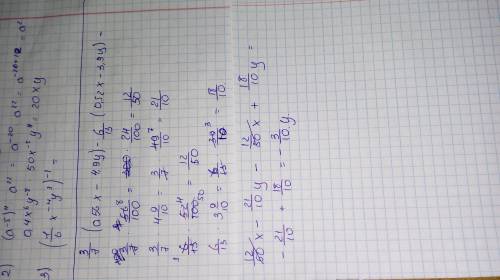 2) (a⁻⁵)⁴ · a²² = a⁻²⁰ · a²² = a⁻²⁰⁺²² = a²
0,4x⁶y⁻⁸ · 50x⁻⁵y⁹ = 20xy
3) (1/6 x⁻⁴y³)⁻¹ =
3/7 (0,56x − 4,9y) − 6/13 (0,52x − 3,9y) =
3/7 · 56/100 = 24/100 = 12/50
3/7 · 4 9/10 = 3/7 · 49/10 = 21/10
6/13 · 52/100 = 12/50
6/13 · 3 9/10 = 6/13 · 39/10 = 18/10
12/50 x − 21/10 y − 12/50 x + 18/10 y =
− 21/10 + 18/10 = − 3/10 y